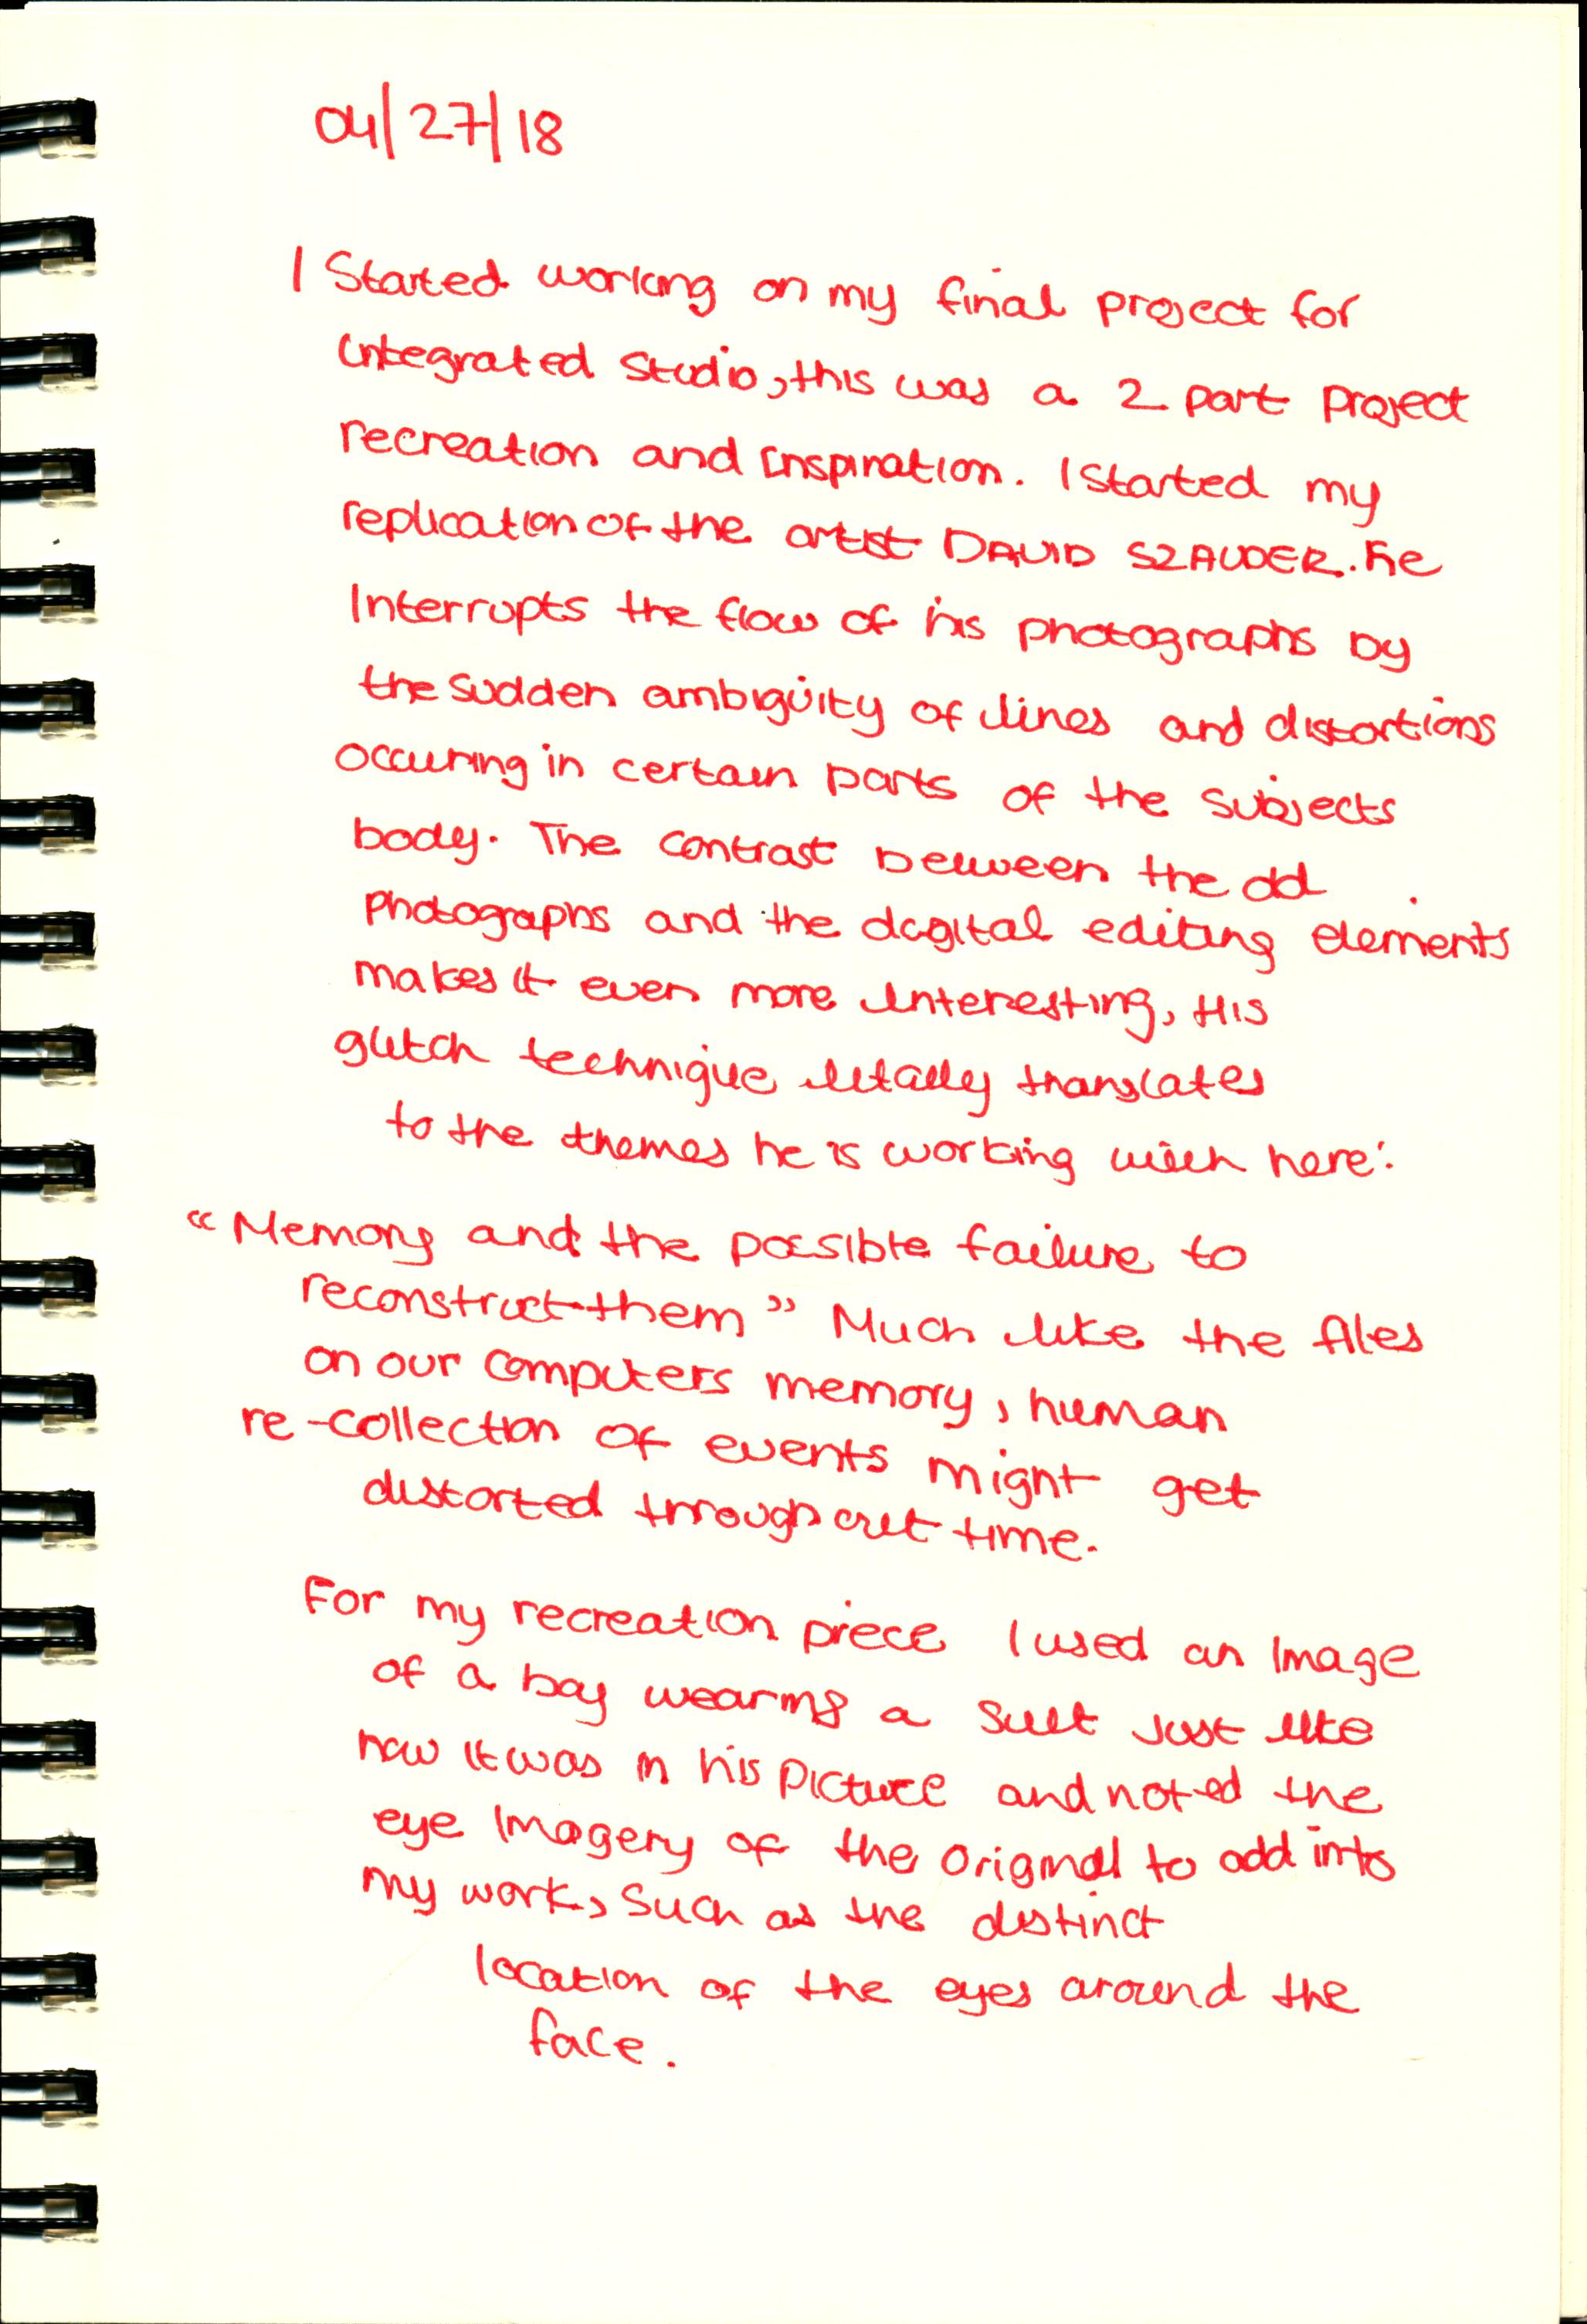 04/27/18
I Started working on my final project for
integrated studio, this was a 2 part project
recreation and inspiration. I started my
replication of the artist DAVID SZAUDER. he
Interrupts the flow of his photographs by
the sudden ambiguity of lines and distortions
occuring in certain parts of the subjects
body. The contrast between the old
photographs and the digital editing elements
makes it even more interesting, His
glitch technique litally translates
to the themes he is working with here:
"Memory and the possible failure to
reconstruct them" Much like the files
on our computers memory, human
re-collection of events might get
distorted throughout time.
For my recreation piece I used an Image
of a boy wearing a suit just like
how it was in his picture and noted the
eye Imagery of the original to add into
my work, such as the distinct
location of the eyes around the
face.